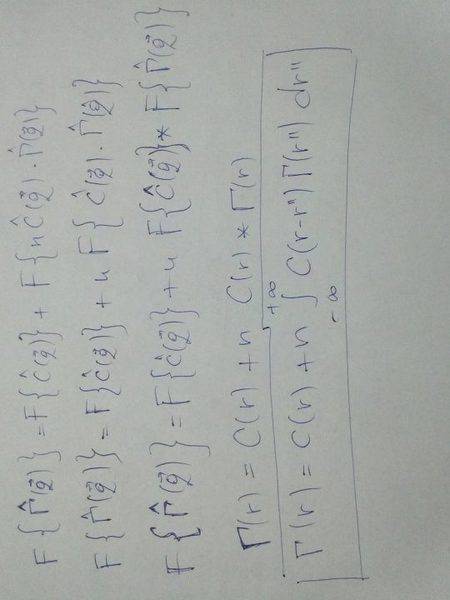 F{Γ̂(q⃗)} = F{Ĉ(q⃗)} + F{nĈ(q⃗)·Γ̂(q⃗)}
F{Γ̂(q⃗)} = F{Ĉ(q⃗)} + n F{Ĉ(q⃗)·Γ̂(q⃗)}
F{Γ̂(q⃗)} = F{Ĉ(q⃗)} + n F{Ĉ(q⃗)} * F{Γ̂(q⃗)}
Γ(r) = C(r) + n C(r) * Γ(r)
Γ(r) = C(r) + n ∫_{-∞}^{+∞} C(r-r'') Γ(r'') dr''